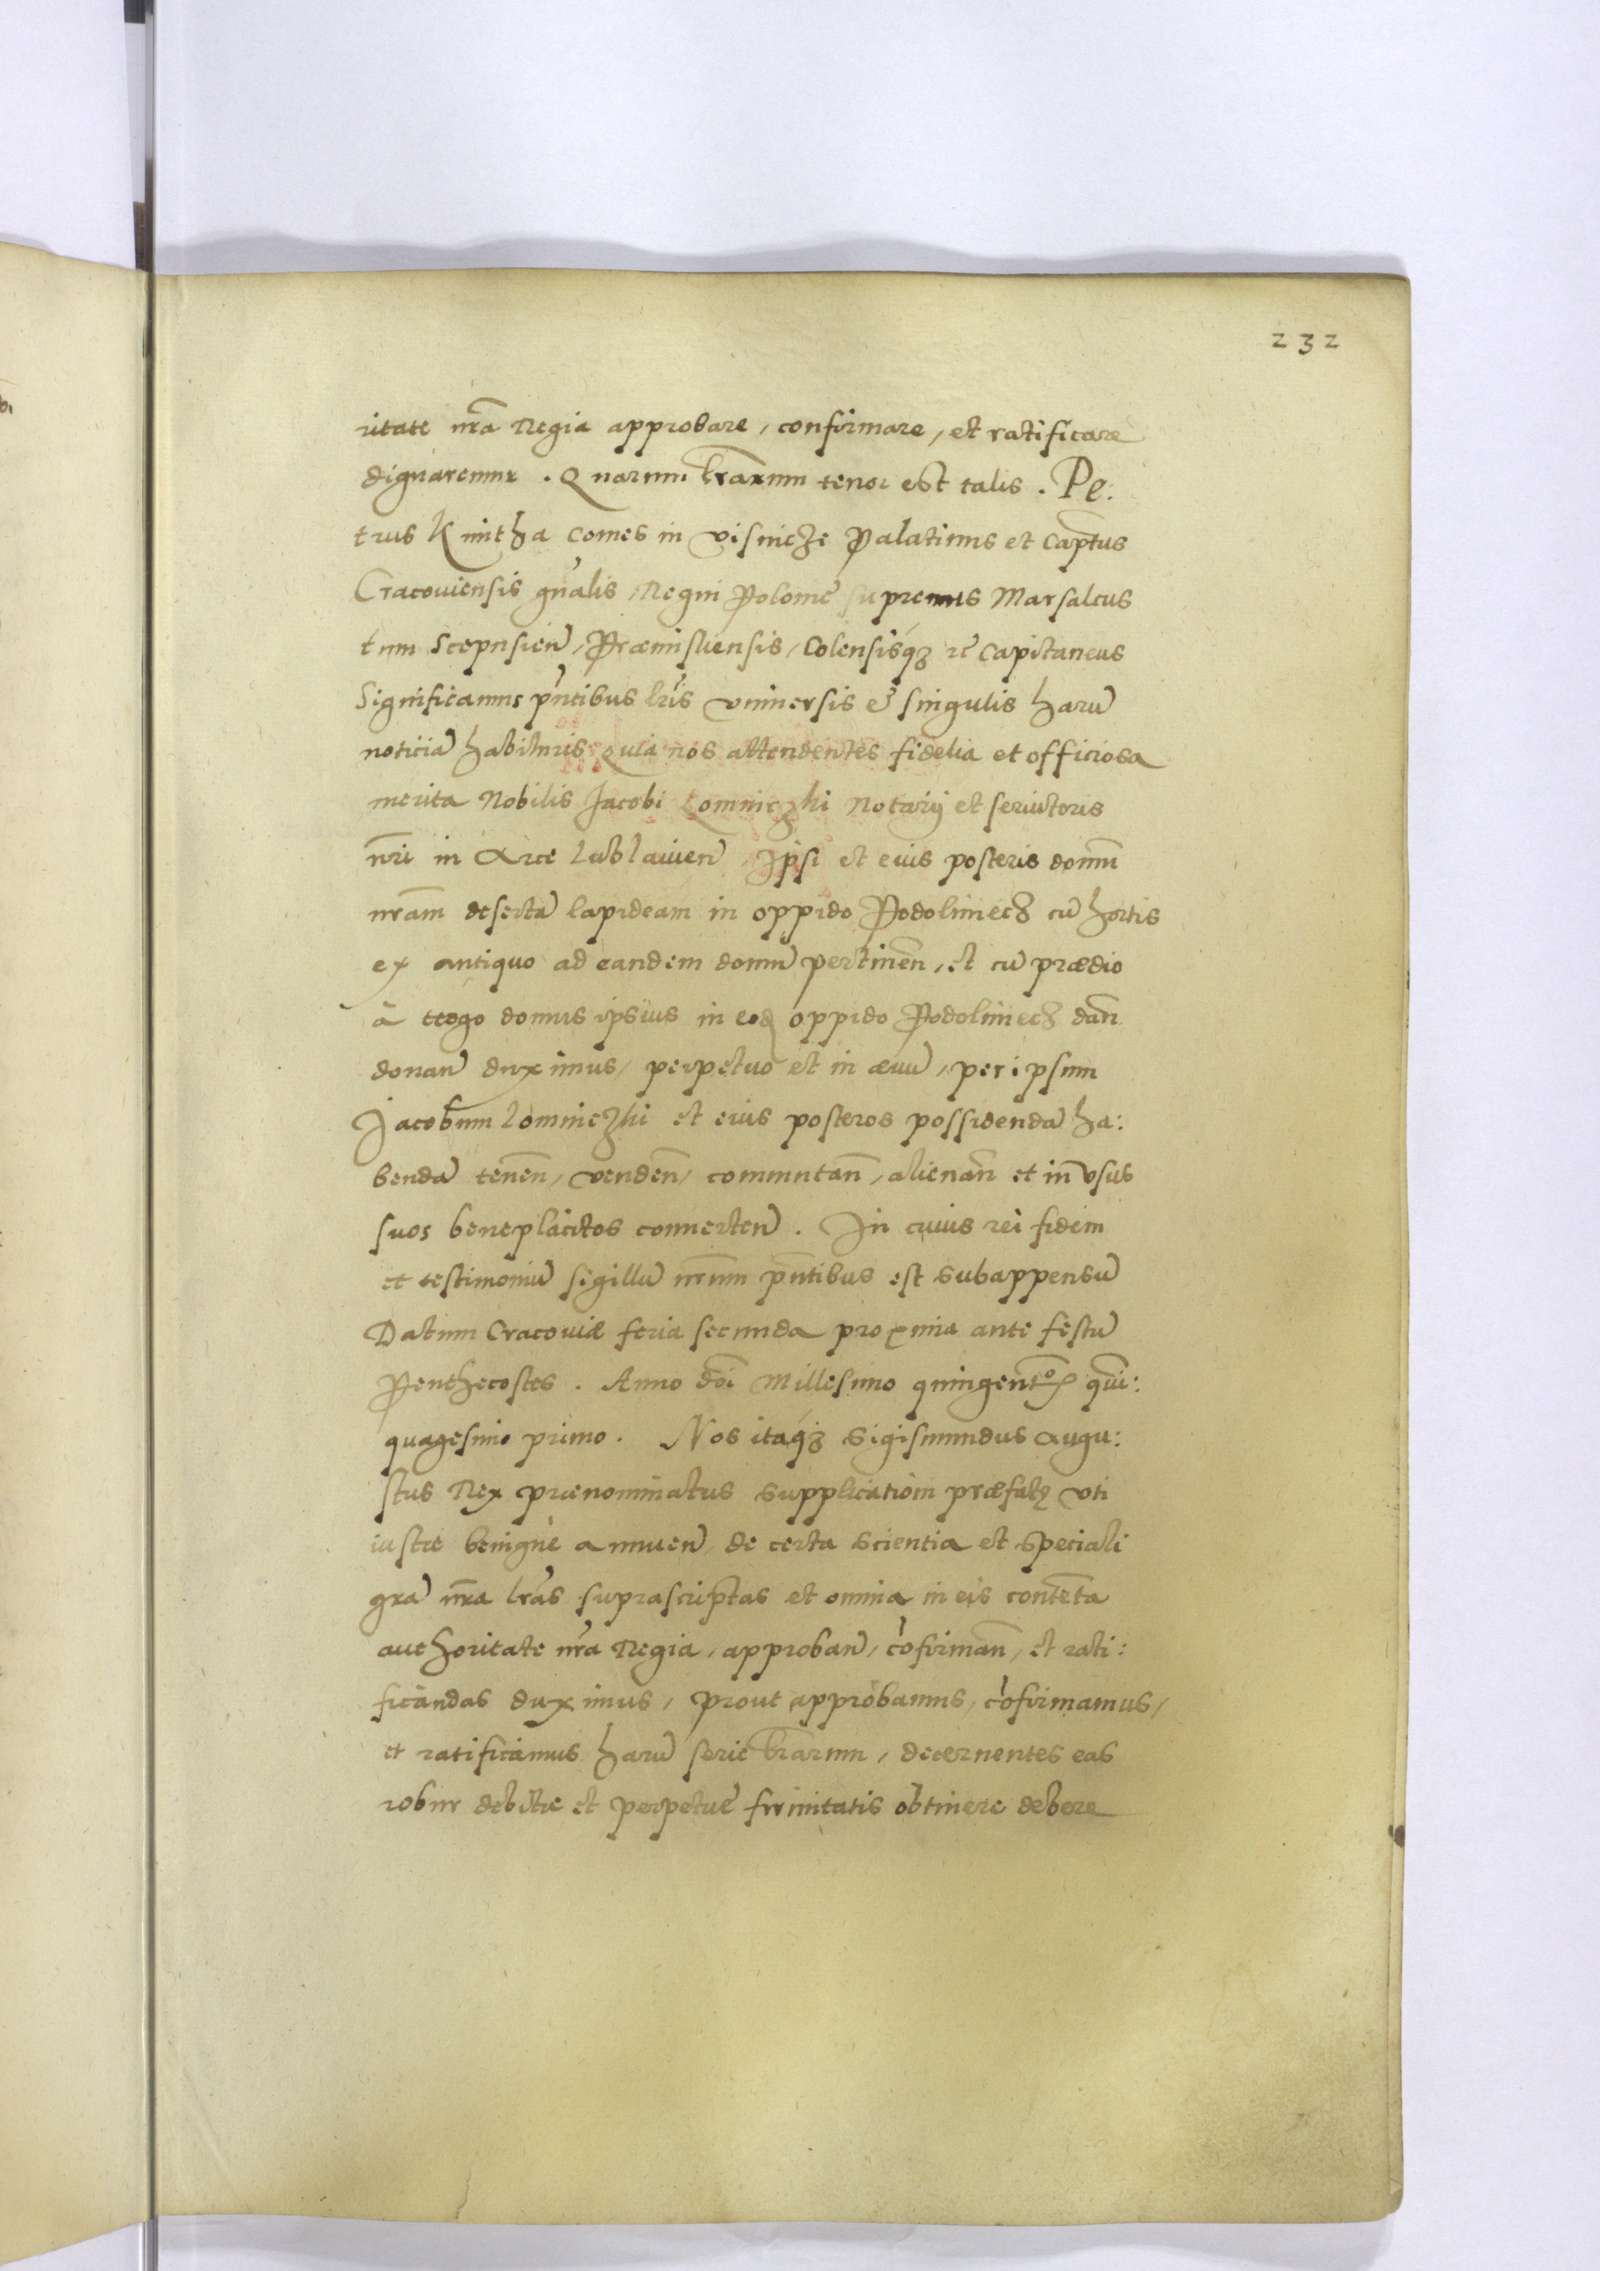 232
ritate nr̃a Regia approbare, confirmare, et ratificare
dignaremur. Quarum lr̃arum tenor est talis. Pe:
trus Kmitha Comes in Visnicze Palatinus et Capt̃us
Cracoviensis gñalis, Regni Poloniæ supremus Marsalcus
tum Scepusieñ, Præmisliensis, Colensisq́ʒ zc̃ Capitaneus
Significamus pñtibus lr̃is vniversis et singulis harũ
noticiã habituris. Quia nos attendentes fidelia et officiosa
merita Nobilis Jacobi Lomniczki Notarij et servitoris
nr̃i in Arce lublavieñ, Ipsi et eius posteris domũ
nr̃am desertã lapideam in oppido Podoliniecz cũ hortis
ex antiquo ad eandem domũ pertineñ, et cũ prædio
à tergo domus ipsius in eod oppido Podoliniecz dañ
donañ duximus, perpetuo et in ævũ, per ipsum
Jacobum Lomniczki et eius posteros possidendã ha:
bendã teneñ, vendeñ, commutañ, alienañ et in vsus
suos beneplacitos converteñ. In cuius rei fidem
et testimoniũ sigillũ nr̃um pñtibus est subappensũ
Datum Cracoviæ feria secunda proxima ante festũ
Penthecostes. Anno dñi Millesimo quingentõ quĩ:
quagesimo primo. Nos itaq́ʒ Sigismundus Augu:
stus Rex prænominatus supplicationi præfatę vti
iustæ benignè annueñ, de certa scientia et speciali
grã nr̃a lr̃as suprascriptas et omnia in eis contẽta
authoritate nr̃a Regia, approbañ, cõfirmañ, et rati:
ficandas duximus, prout approbamus, cõfirmamus,
et ratificamus harũ serie lr̃arum, decernentes eas
robur debitæ et perpetuæ firmitatis obtinere debere